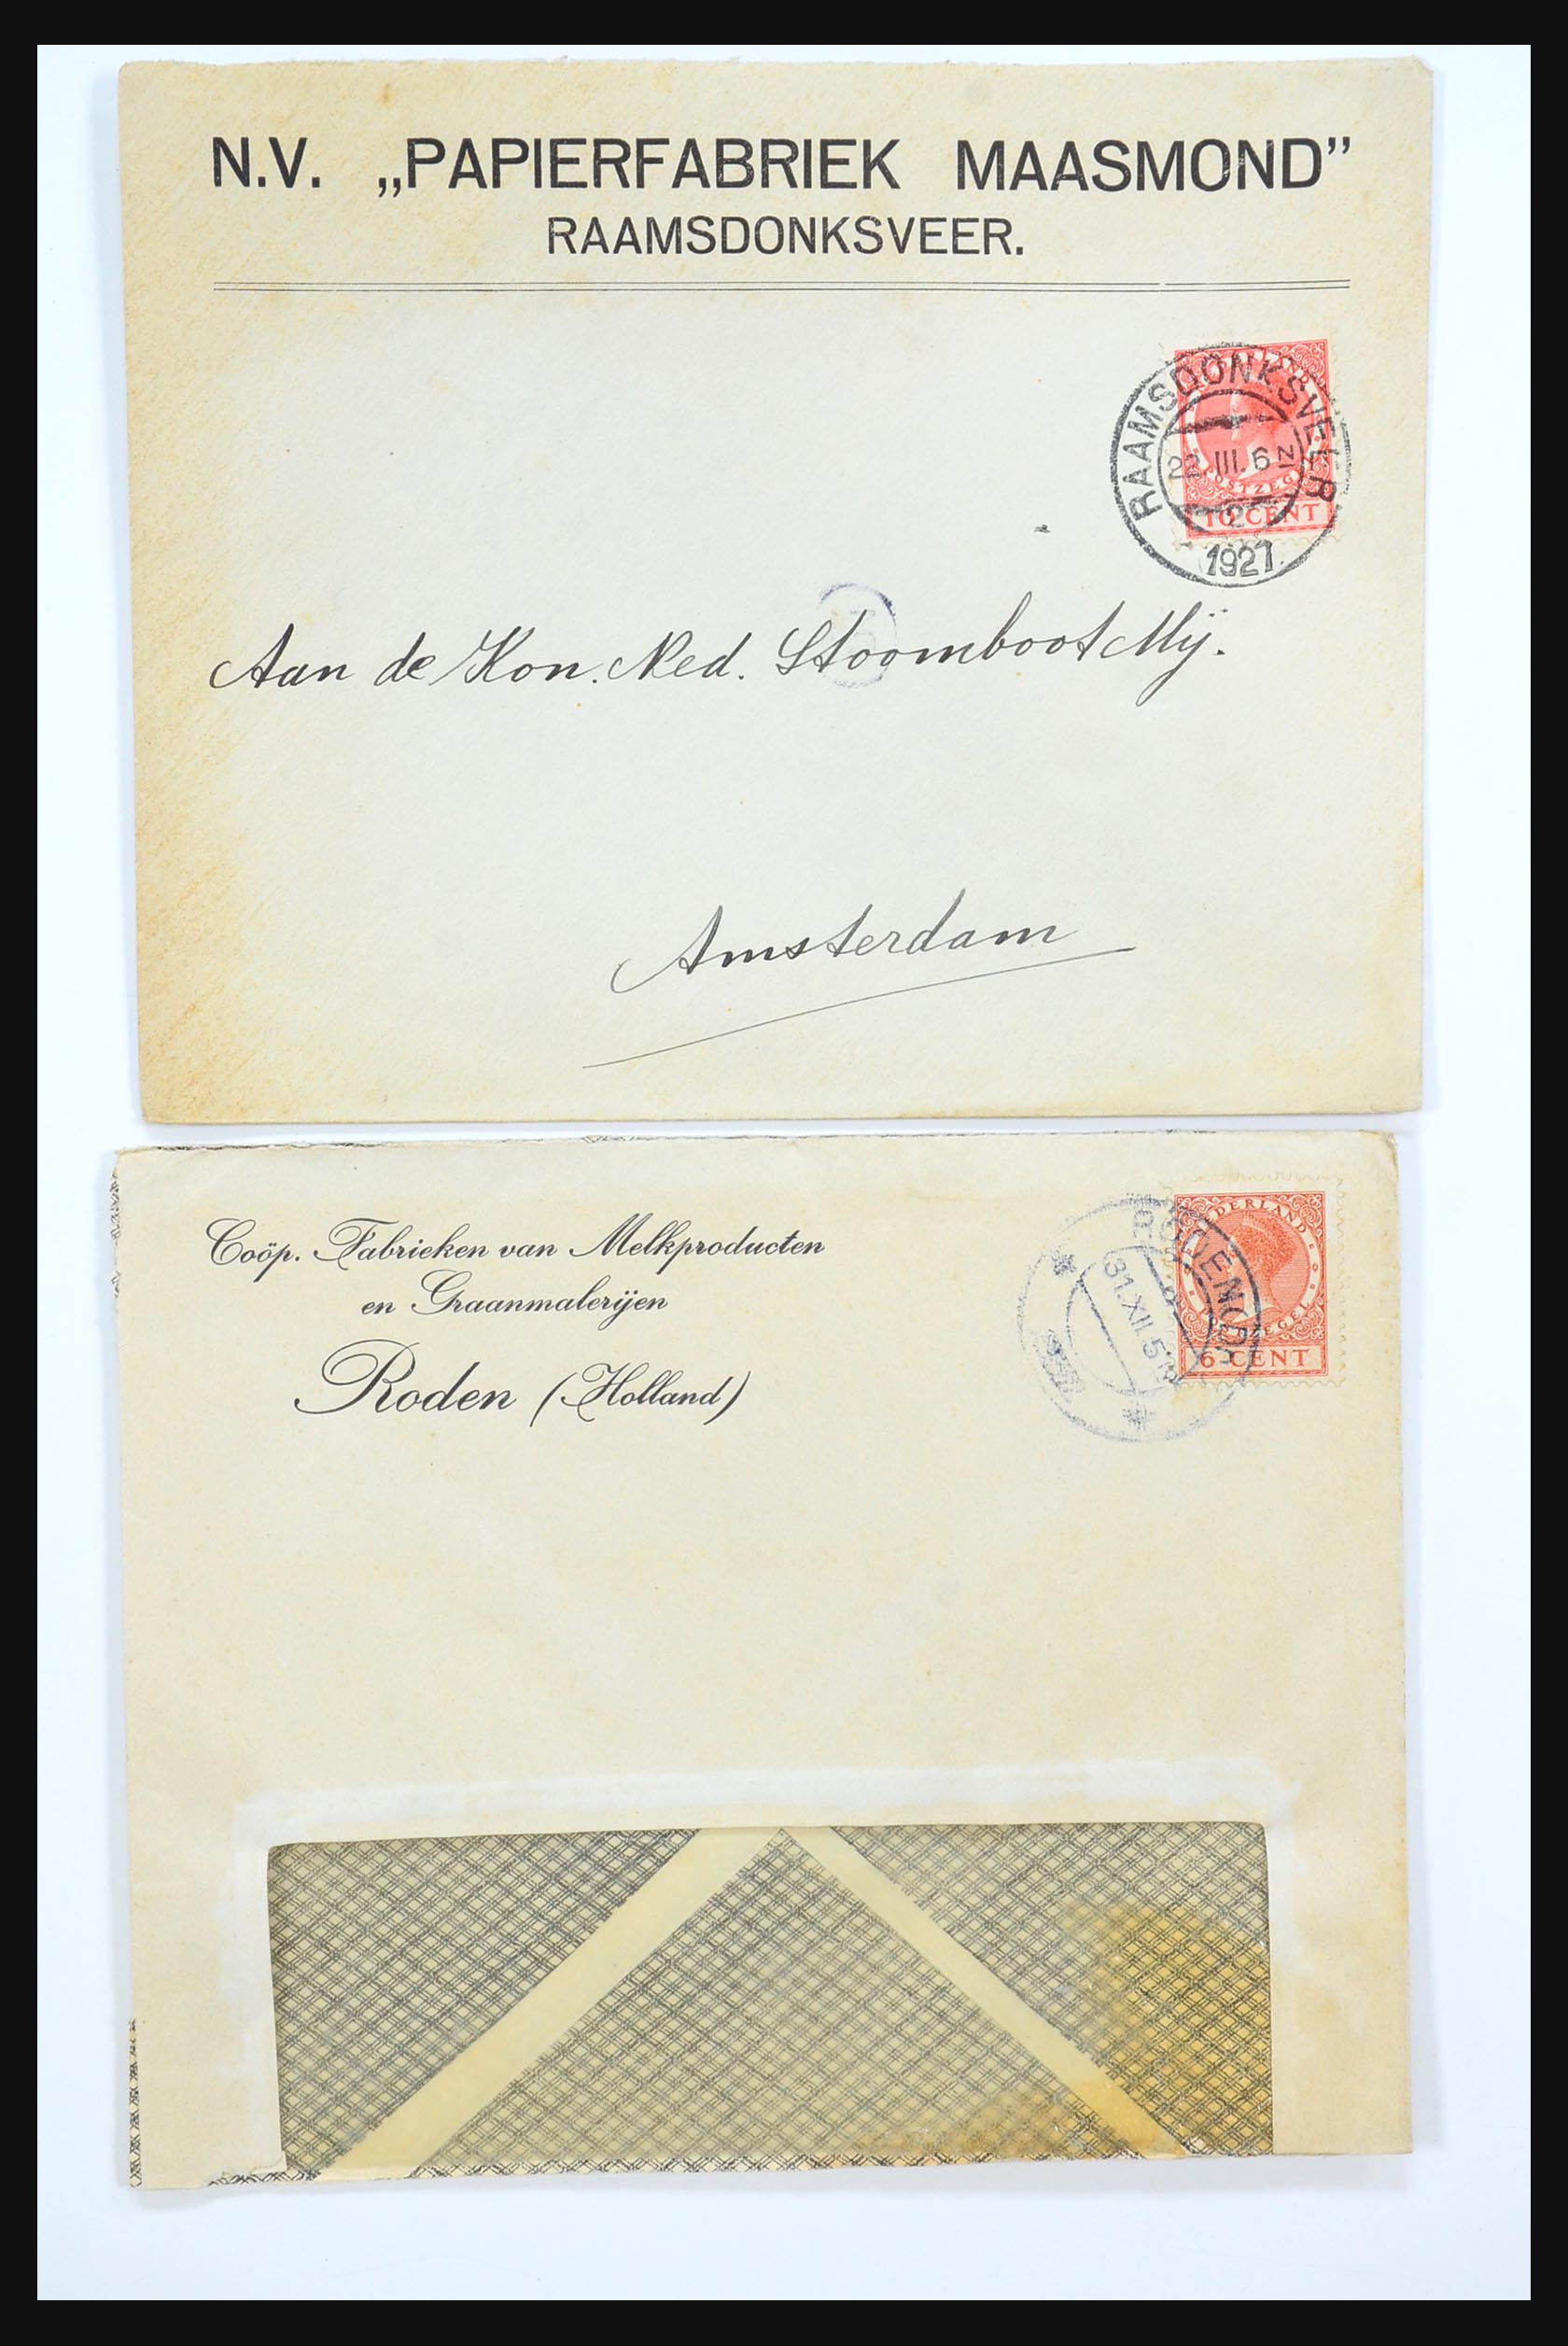 N.V. „PAPIERFABRIEK MAASMOND”
RAAMSDONKSVEER.
RAAMSDONKSVEER
22.III.6N
2
1927
POSTZEGEL
10 CENT
Aan de Kon. Ned. Stoomboot Mij.
Amsterdam
Coöp. Fabrieken van Melkproducten
en Graanmalerijen
Roden (Holland)
31.XII.5
NEDERLAND
POSTZEGEL
6 CENT